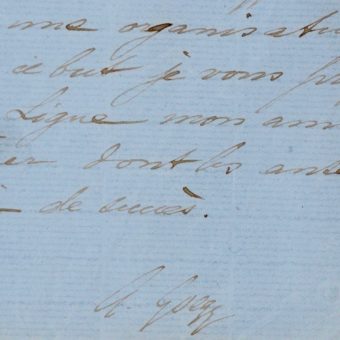 une organisatio
ce but je vous p
Ligue mon am
er dont les anté
de succès.
A. Goegg